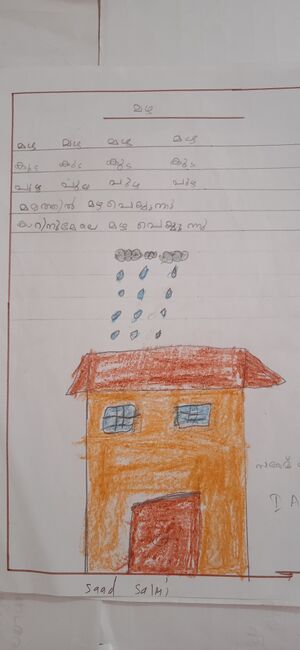 മഴ
മഴ മഴ മഴ മഴ
കുട കുട കുട കുട
പുഴ പുഴ പുഴ പുഴ
മഴ പെയ്യുന്നു
മഴ പെയ്യുന്നു
Saad Salmi
I A